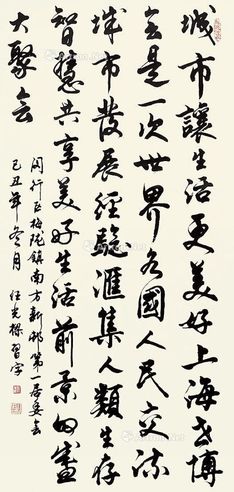 城市讓生活更美好上海世博
会是一次世界各國人民交流
城市發展經驗匯集人類生存
智慧共享美好生活前景的盛
大聚会
闵行区梅陇鎮南方新邨第一居委会
己丑年冬月 任光樑習字